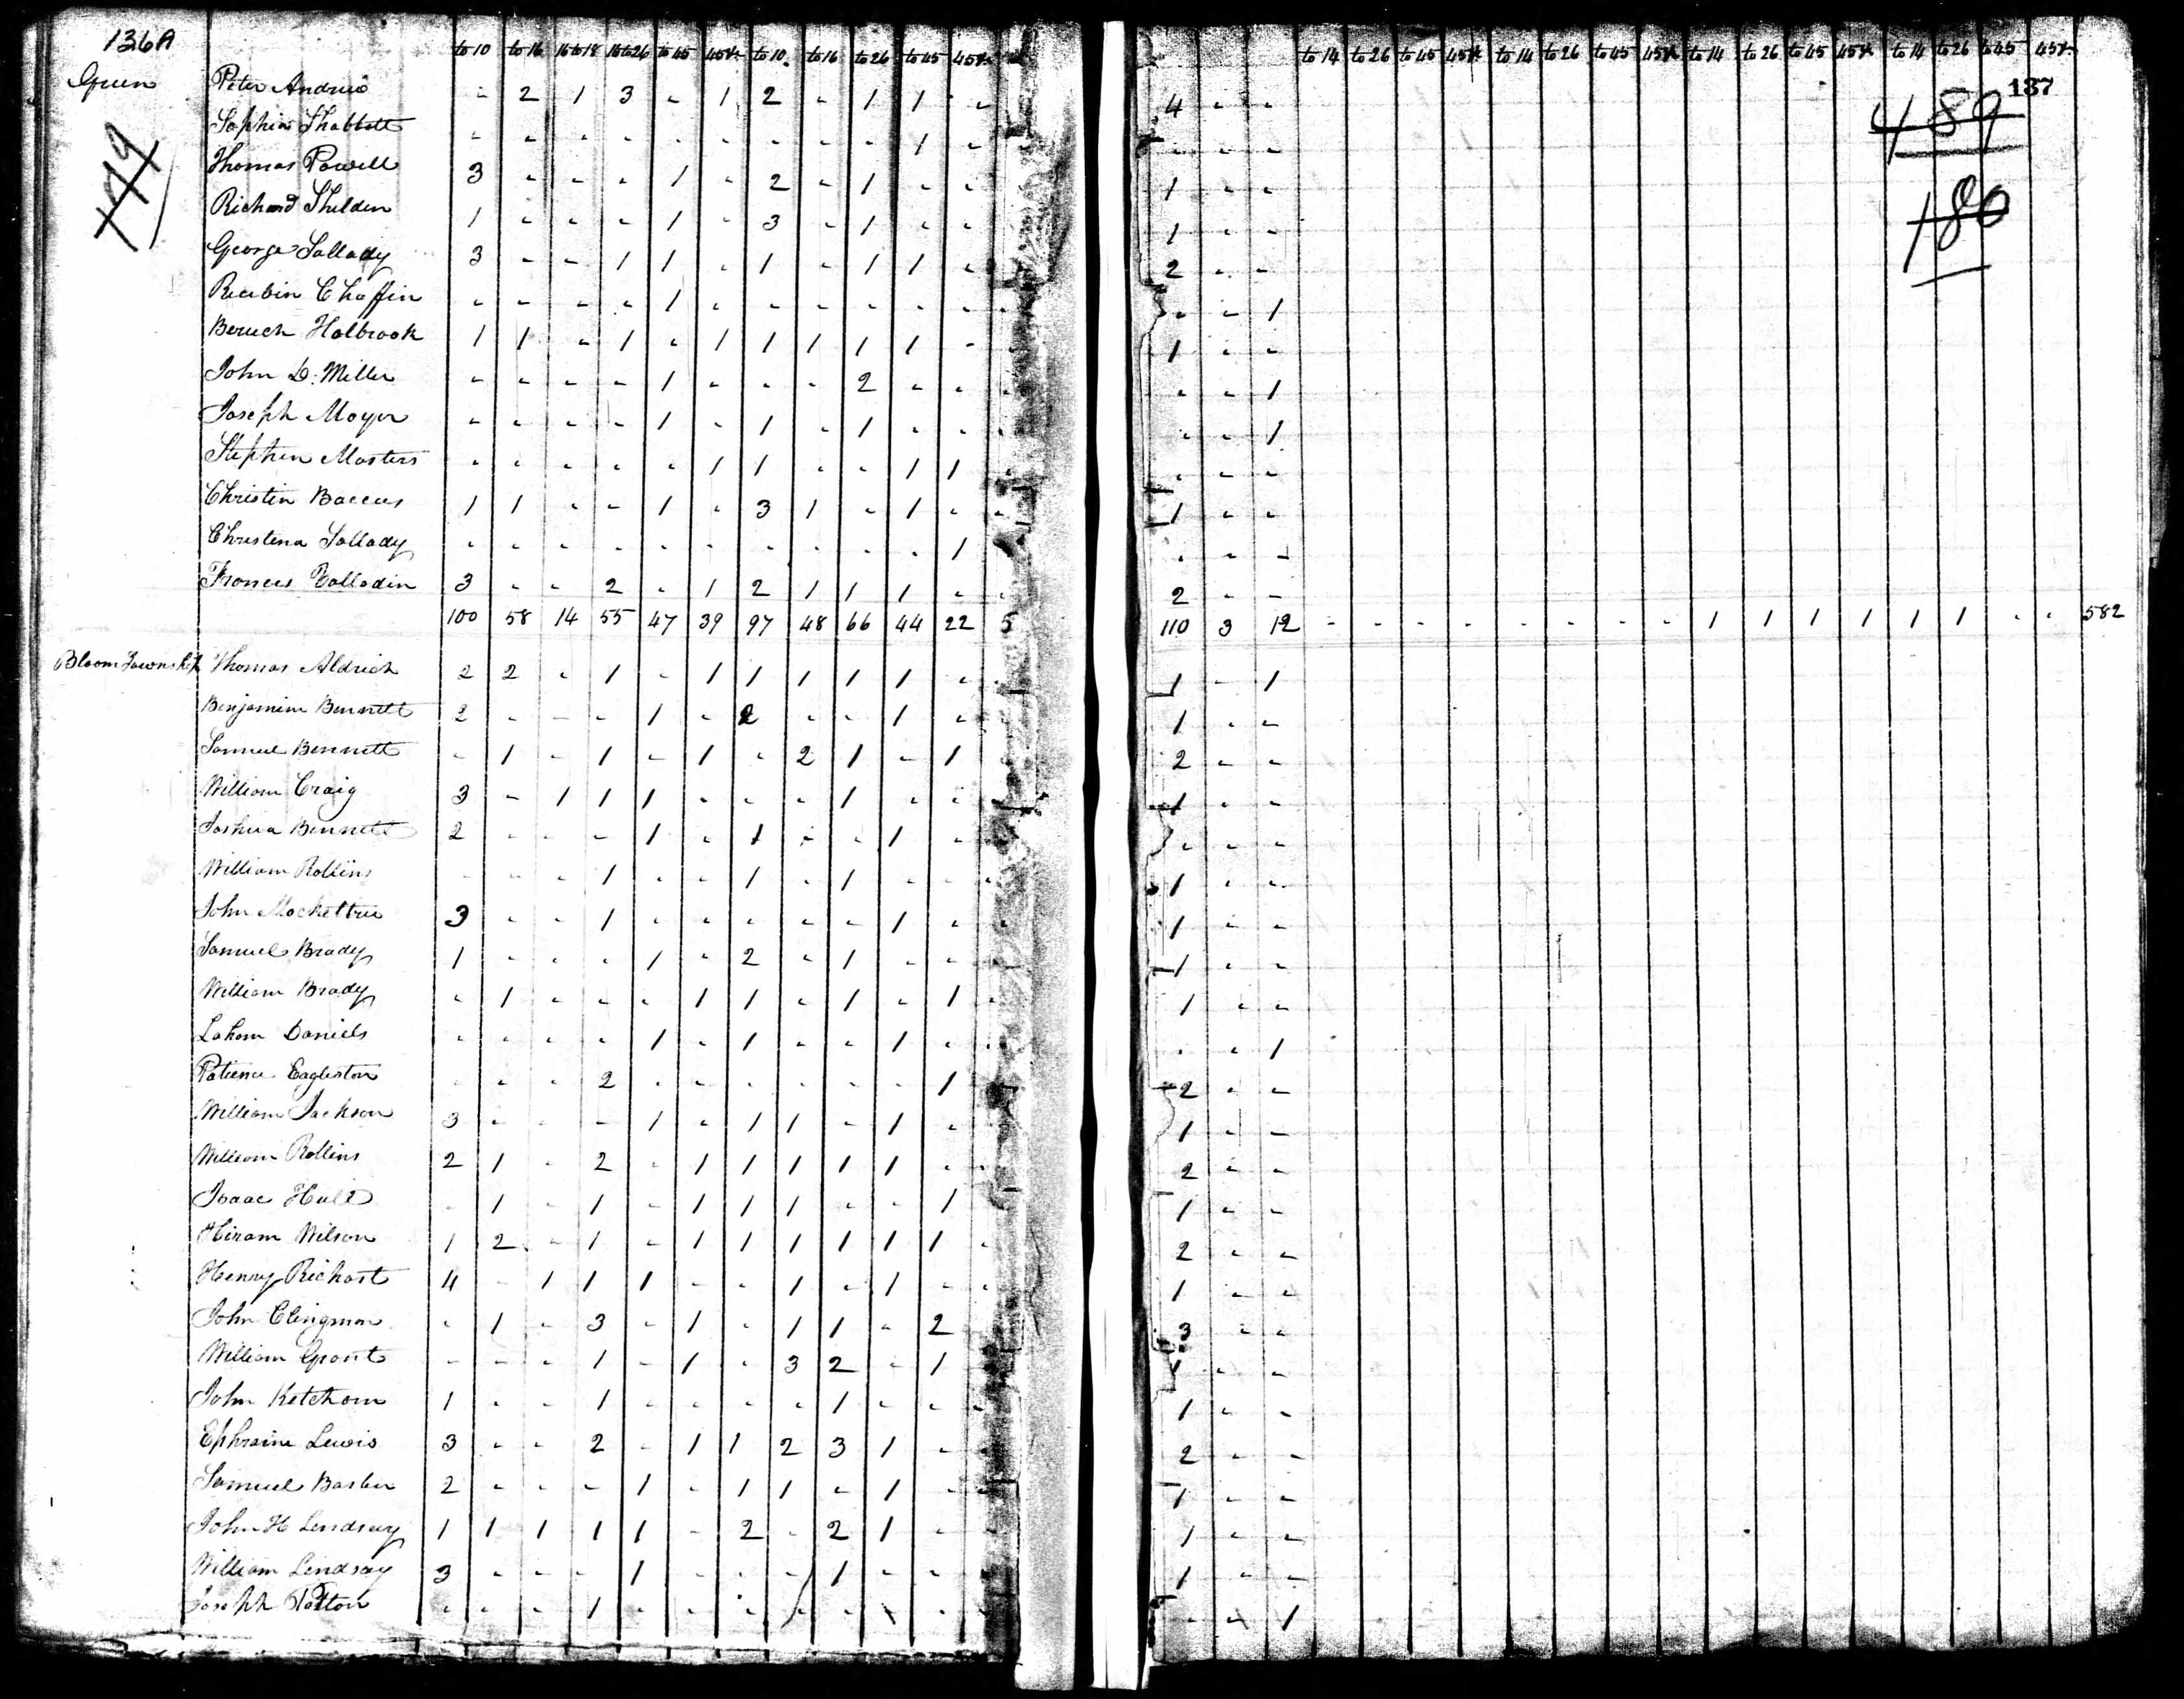 136A to 10 to 16 16 to 18 16 to 26 to 45 45 &c to 10 to 16 to 26 to 45 45 &c to 14 to 26 to 45 45 &c to 14 to 26 to 45 45 &c to 14 to 26 to 45 45 &c to 14 to 26 to 45 45 &c
137
489
180
Green Peter Andrew - 2 1 3 - 1 2 - 1 1 - 4 - -
149
Sophia - - - - - - - - - 1 - - - -
Thomas Powell 3 - - - 1 - 2 - 1 - - 1 - -
Richard Shelden 1 - - - 1 - 3 - 1 - - 1 - -
George Sallady 3 - - 1 1 - 1 - 1 1 - 2 - -
Reubin Chaffin - - - - 1 - - - - - - - - 1
Beruch Holbrook 1 1 - 1 - 1 1 1 1 1 - 1 - -
John D. Miller - - - - 1 - - - 2 - - - - 1
Joseph Moyer - - - - 1 - 1 - 1 - - - - 1
Stephen Masters - - - - - 1 1 - - 1 1 - - -
Christin Baccus 1 1 - - 1 - 3 1 - 1 - 1 - -
Christena Sallady - - - - - - - - - - 1 - - -
Frances Valladin 3 - - 2 - 1 2 1 1 1 - 2 - -
100 58 14 55 47 39 97 48 66 44 22 5 110 3 12 - - - - - - - - 1 1 1 1 1 1 - - 582
Bloom Township Thomas Aldrich 2 2 - 1 - 1 1 1 1 1 - 1 - 1
Benjamin Bennett 2 - - - 1 - 2 - - 1 - 1 - -
Samuel Bennett - 1 - 1 - 1 - 2 1 - 1 2 - -
William Craig 3 - 1 1 1 - - - 1 - - 1 - -
Joshua Bennett 2 - - - 1 - 1 - - 1 - - - -
William Rollins - - - 1 - - 1 - 1 - - 1 - -
John Mackeltree 3 - - 1 - - - - - 1 - 1 - -
Samuel Brady 1 - - - 1 - 2 - 1 - - 1 - -
William Brady - 1 - - - 1 1 - 1 - 1 1 - -
Laham Daniels - - - - 1 - 1 - - 1 - - - 1
Patience Eagleston - - - 2 - - - - - - 1 2 - -
William Jackson 3 - - - 1 - 1 1 - 1 - 1 - -
William Rollins 2 1 - 2 - 1 1 1 1 1 - 2 - -
Isaac Hull - 1 - 1 - 1 1 1 - - 1 1 - -
Hiram Wilson 1 2 - 1 - 1 1 1 1 1 1 2 - -
Henry Richart 4 - 1 1 1 - - 1 - 1 - 1 - -
John Clingman - 1 - 3 - 1 - 1 1 - 2 3 - -
William Grant - - - 1 - 1 - 3 2 - 1 1 - -
John Ketcham 1 - - 1 - - - - 1 - - 1 - -
Ephraim Lewis 3 - - 2 - 1 1 2 3 1 - 2 - -
Samuel Barber 2 - - - 1 - 1 1 - 1 - 1 - -
John H Lindsay 1 1 1 1 1 - 2 - 2 1 - 1 - -
William Lindsay 3 - - - 1 - - - 1 - - 1 - -
Joseph Patton - - - 1 - - - - - - - - - 1